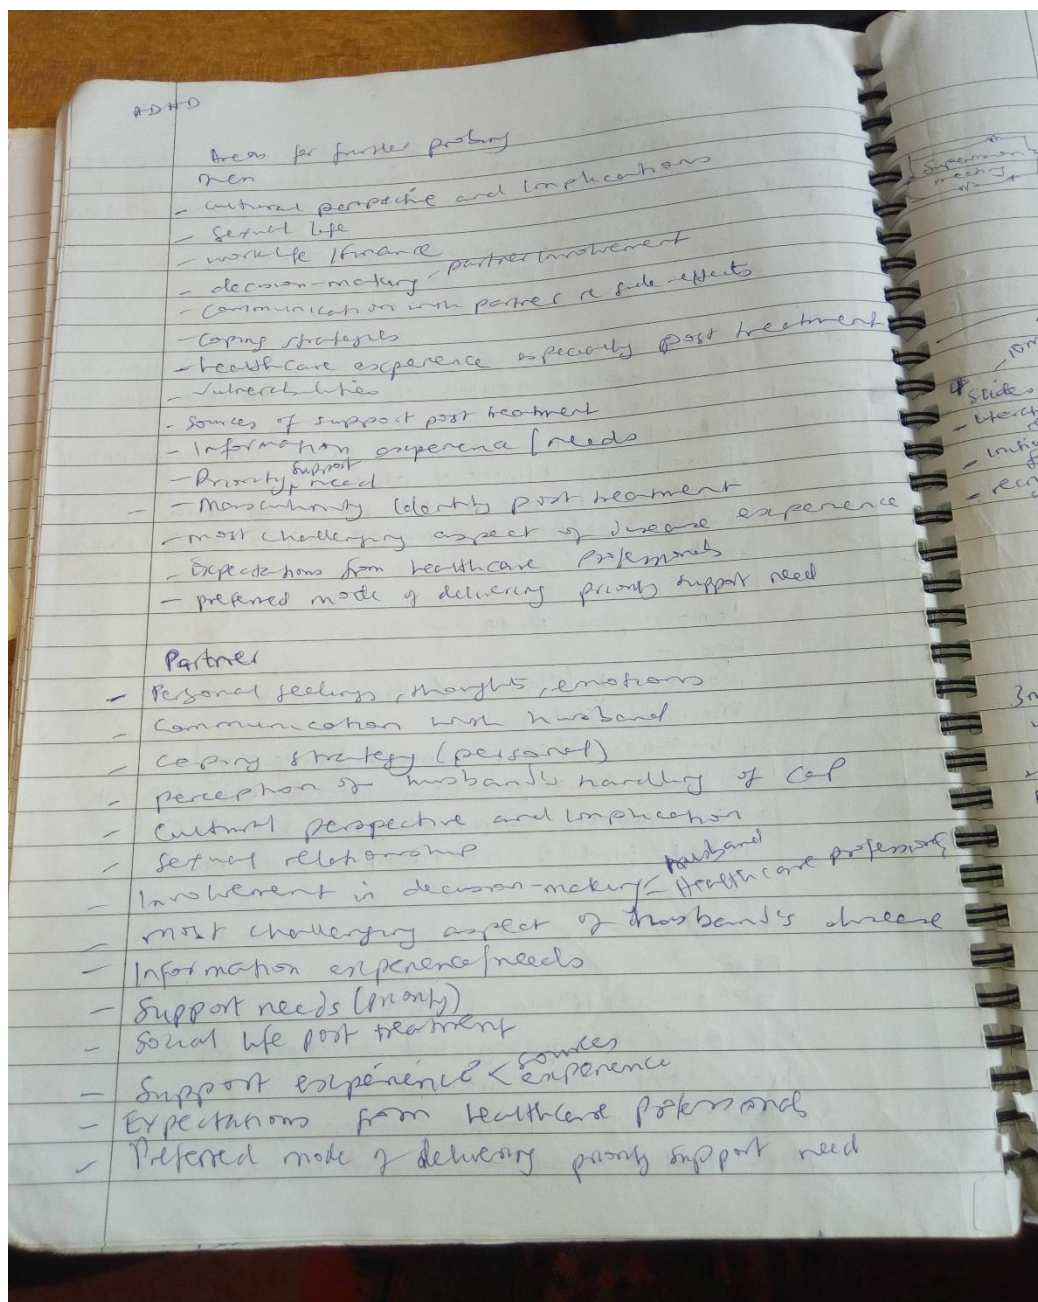 ADHD
Areas for further probing
Men
- Cultural perspective and implications
- Sexual life
- worklife / finance
- decision-making - partner involvement
- Communication with partner re side effects
- Coping strategies
- healthcare experience especially post treatment
- Vulnerabilities
- Sources of support post treatment
- Information experience / needs
- Priority support need
- Masculinity identity post treatment
- most challenging aspect of disease experience
- Expectations from healthcare professionals
- preferred mode of delivering priority support need
Partner
- Personal feelings, thoughts, emotions
- Communication with husband
- Coping strategy (personal)
- perception of husband's handling of CaP
- Cultural perspective and implication
- Sexual relationship
- Involvement in decision-making < husband
Healthcare professional
- most challenging aspect of husband's disease
- Information experience/needs
- Support needs (priority)
- Social life post treatment
- Support experience < sources
experience
- Expectations from healthcare professionals
- Preferred mode of delivering priority support need
meeting
slides